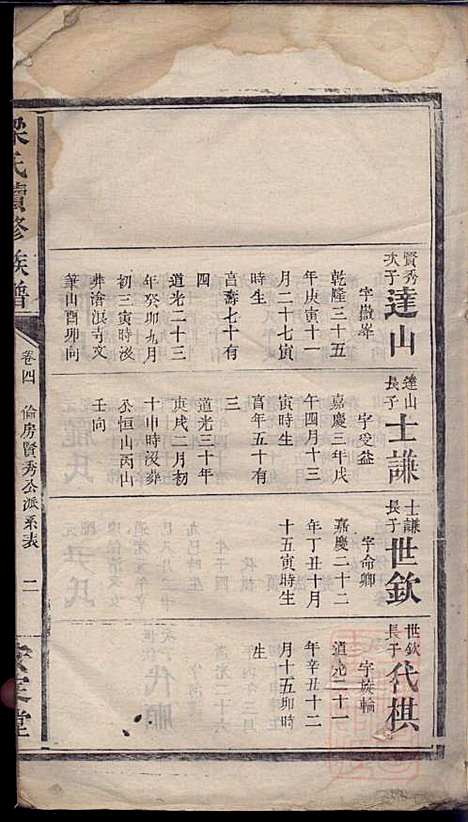 賢秀次子達山
字嶽峯
乾隆三十五
年庚寅十一
月二十七寅
時生
享壽七十有
四
道光二十三
年癸卯九月
初三寅時沒
葬滄浪寺文
筆山酉卯向
達山長子士謙
字受益
嘉慶三年戊
午四月十三
寅時生
享年五十有
三
道光三十年
庚戌二月初
十申時沒葬
公恒山丙山
壬向
士謙長子世欽
字命卿
嘉慶二十二
年丁丑十月
十五寅時生
世欽長子代棋
字族輪
道光二十一
年辛丑十二
月十五卯時
生
梁氏續修族譜
卷四
倫房賢秀公派系表
二
安定堂